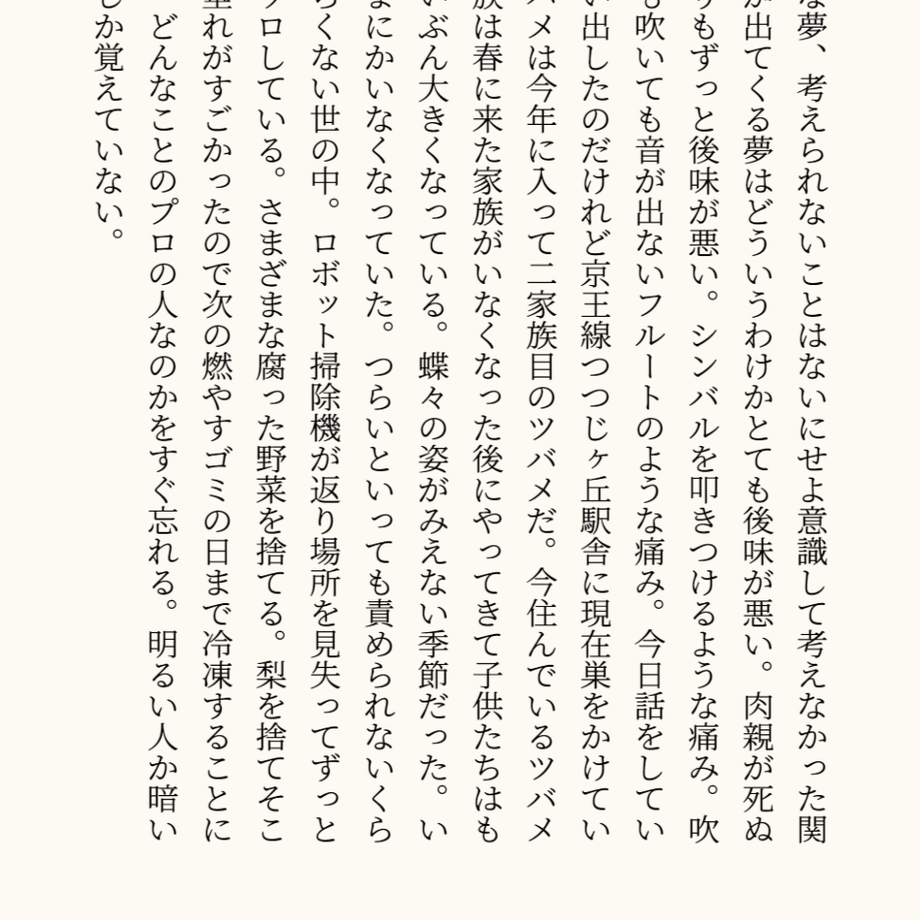 夢、考えられないことはないにせよ意識して考えなかった関
出てくる夢はどういうわけかとても後味が悪い。肉親が死ぬ
もずっと後味が悪い。シンバルを叩きつけるような痛み。吹
吹いても音が出ないフルートのような痛み。今日話をしてい
出したのだけれど京王線つつじヶ丘駅舎に現在巣をかけてい
メは今年に入って二家族目のツバメだ。今住んでいるツバメ
は春に来た家族がいなくなった後にやってきて子供たちはも
ぶん大きくなっている。蝶々の姿がみえない季節だった。い
にかいなくなっていた。つらいといっても責められないくら
くない世の中。ロボット掃除機が返り場所を見失ってずっと
ロしている。さまざまな腐った野菜を捨てる。梨を捨てそこ
れがすごかったので次の燃やすゴミの日まで冷凍することに
どんなことのプロの人なのかをすぐ忘れる。明るい人か暗い
か覚えていない。